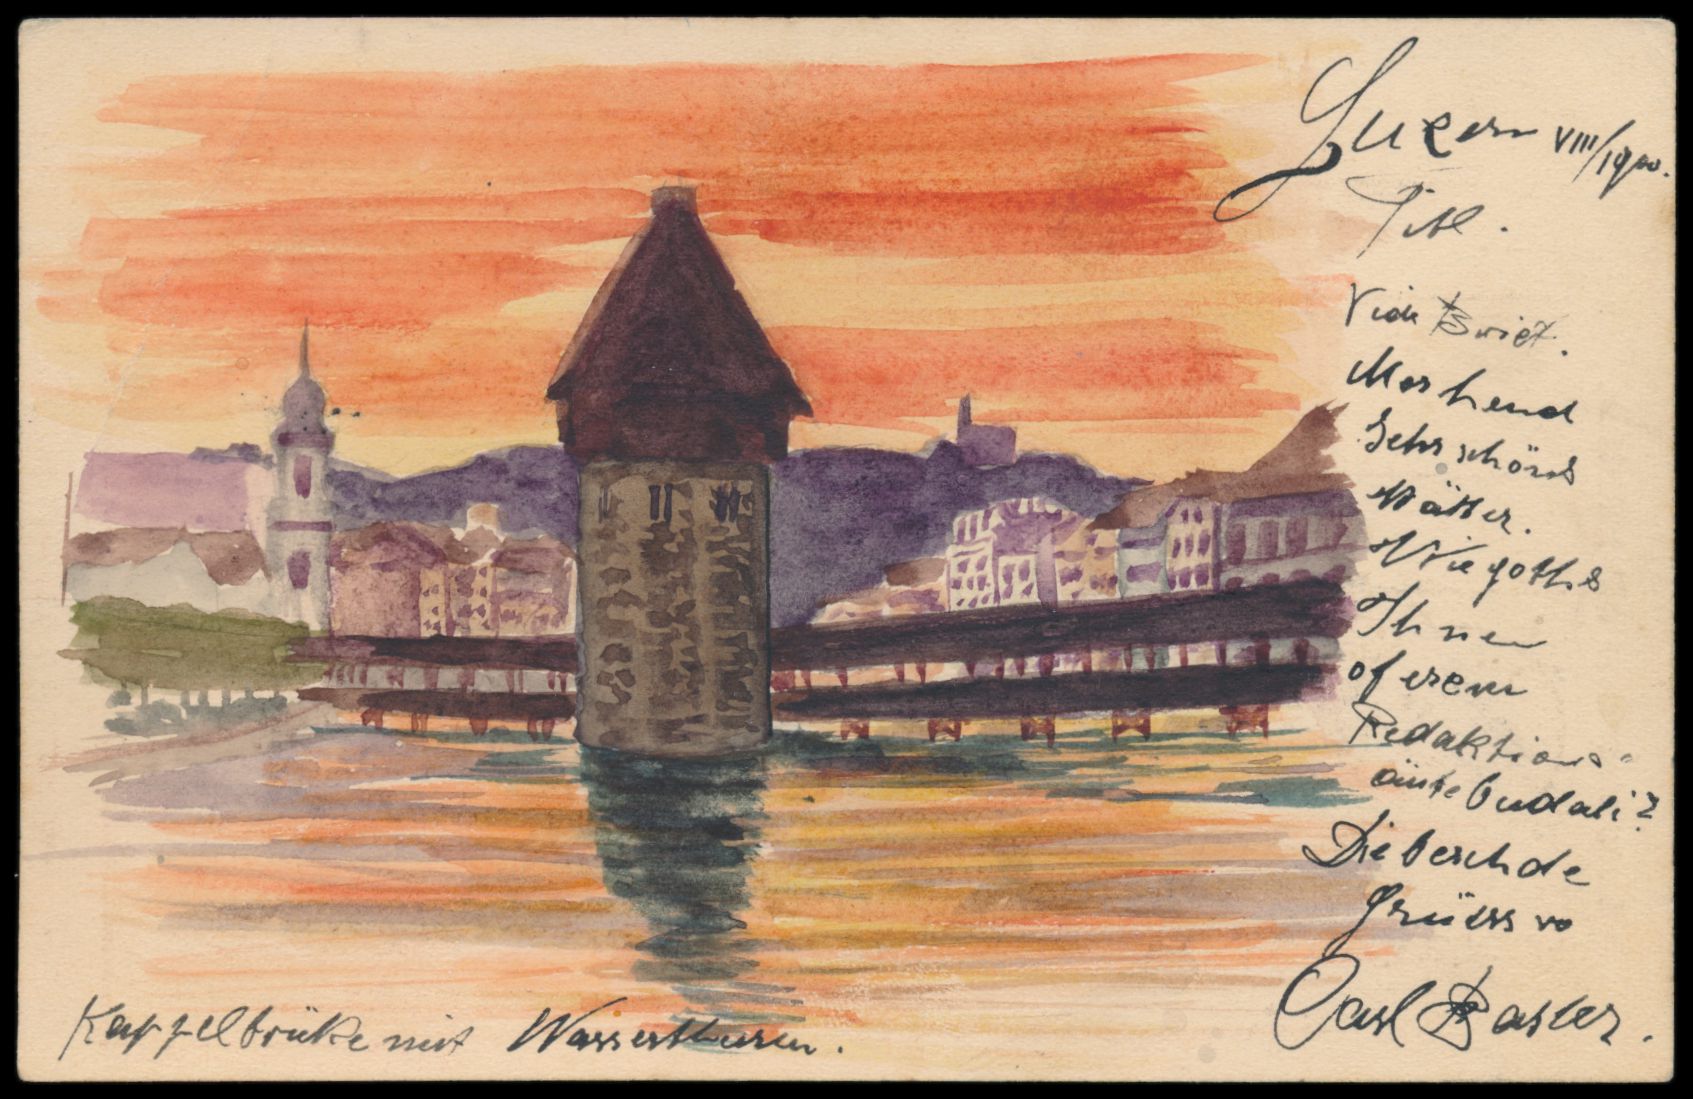 Luzern VIII/1900.
Titl.
Vide Brief.
Morhend
Sehr schöns
Wätter.
Wie goths
Ihnen
of erem
Redaktions-
Die besch de
Grüess vo
Carl Basler.
Kappelbrüke mit Wasserthurm.